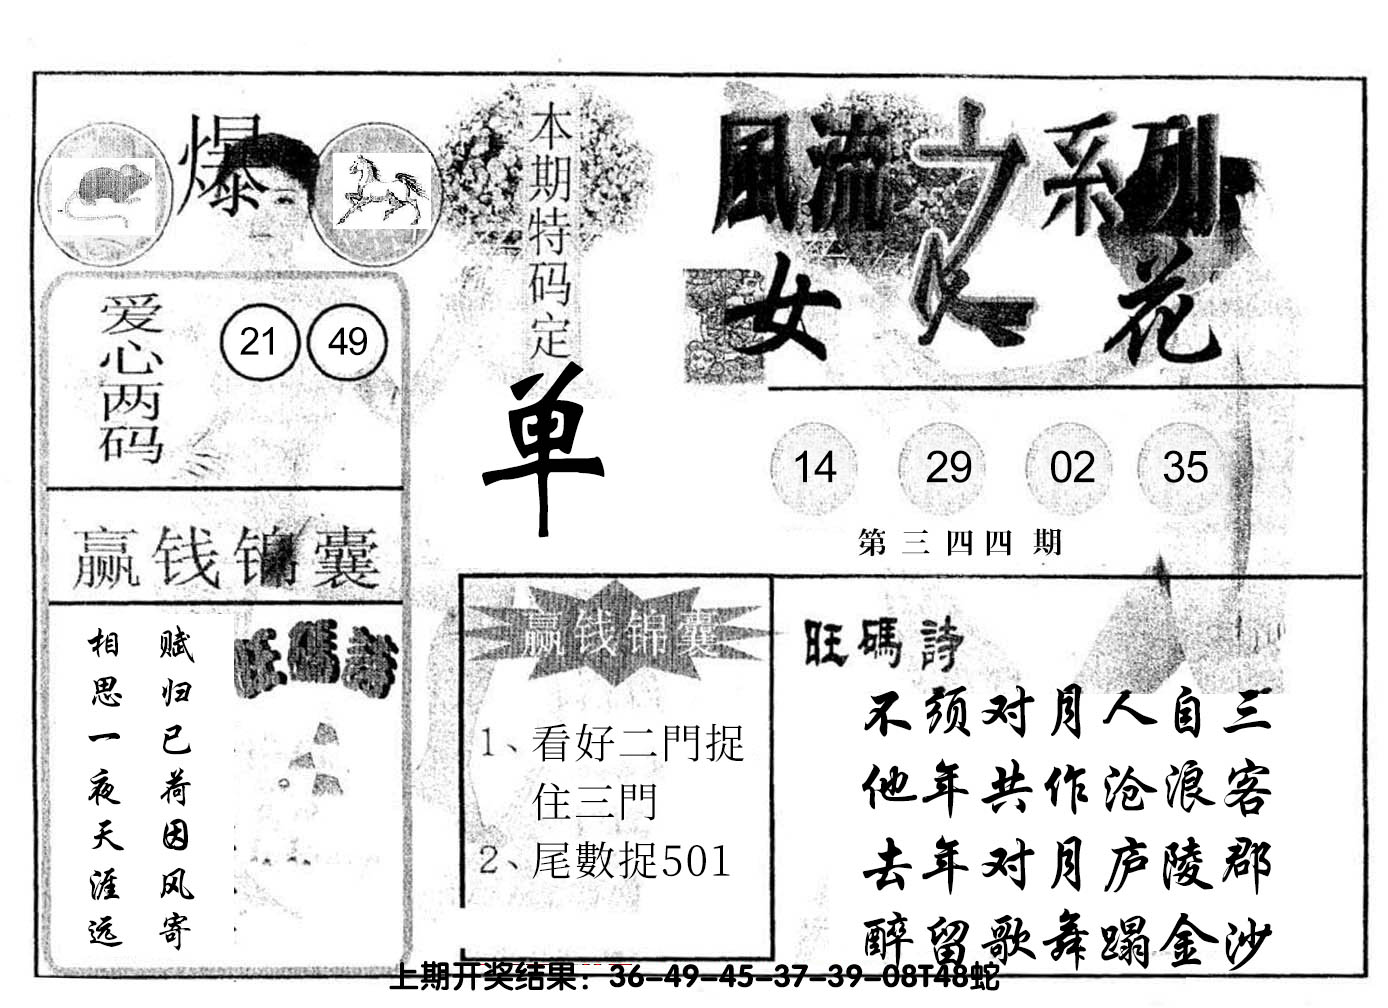 爆
本期特码定
单
風流之系列
女人花
爱心两码
21 49
14 29 02 35
第三四四期
赢钱锦囊
旺碼詩
赋归已荷因风寄
相思一夜天涯远
赢钱锦囊
1、看好二門捉
住三門
2、尾數捉501
旺碼詩
不须对月人自三
他年共作沧浪客
去年对月庐陵郡
醉留歌舞蹋金沙
上期开奖结果：36-49-45-37-39-08T48蛇